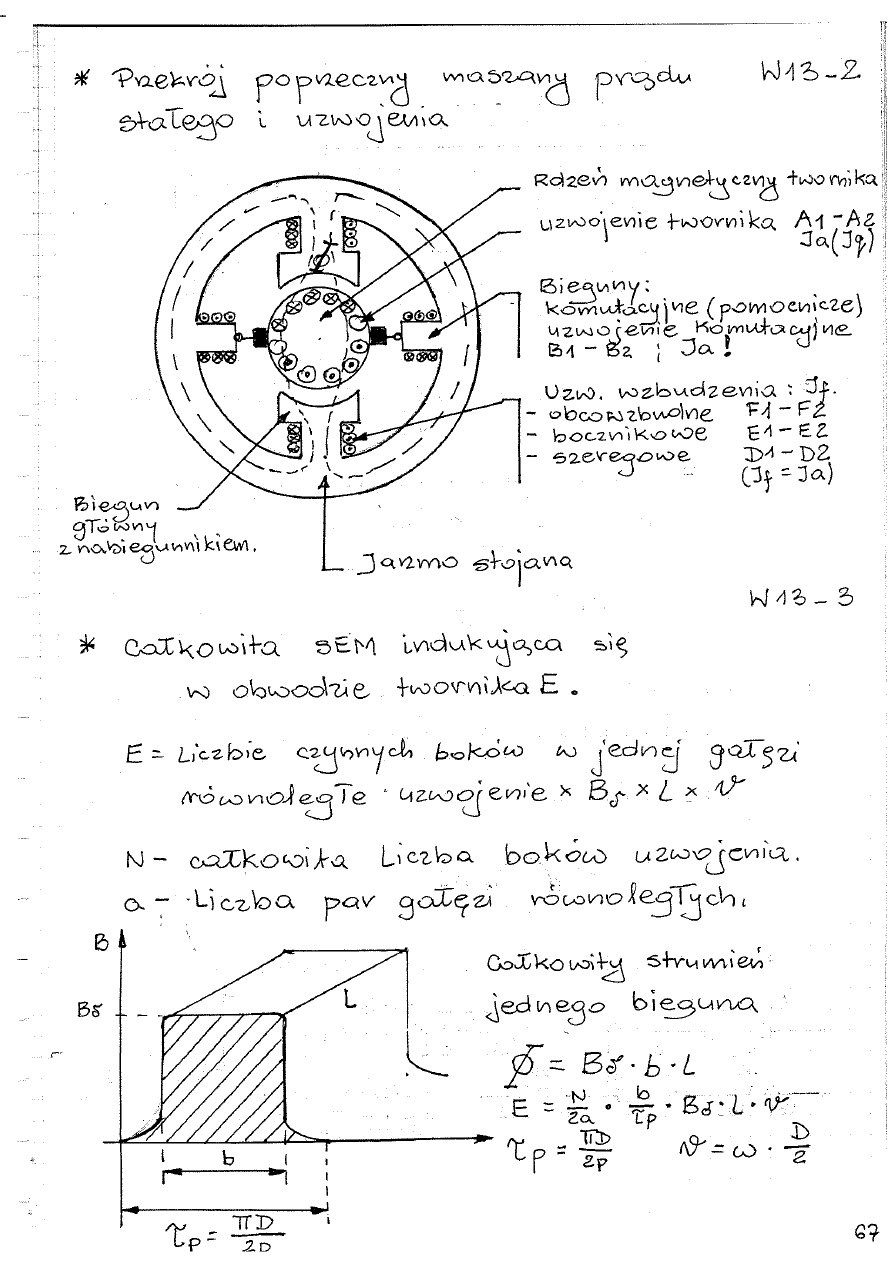 * Przekrój poprzeczny maszany prądu W13-2
stałego i uzwojenia
Rdzeń magnetyczny twornika
uzwojenie twornika A1-A2
Ja(Jq)
Bieguny:
komutacyjne (pomocnicze)
uzwojenie komutacyjne
B1-B2 ; Ja!
Uzw. wzbudzenia : Jf.
- obcowzbudne F1-F2
- bocznikowe E1-E2
- szeregowe D1-D2
(Jf = Ja)
Biegun
główny
z nabiegunnikiem.
Jarzmo stojana
W13-3
* Całkowita SEM indukująca się
w obwodzie twornika E.
E = Liczbie czynnych boków w jednej gałęzi
równoległe uzwojenie × Bδ × L × v
N - całkowita Liczba boków uzwojenia.
a - Liczba par gałęzi równoległych,
B
Bδ
L
b
τp = πD/2p
Całkowity strumień
jednego bieguna
Φ = Bδ · b · L
E = N/2a · b/τp · Bδ · L · v
τp = πD/2p v = ω · D/2
67